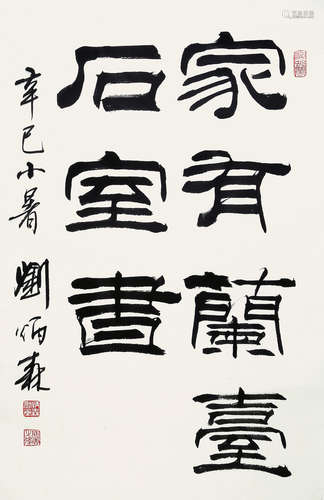 家有蘭臺
石室書
辛巳小暑 劉炳森